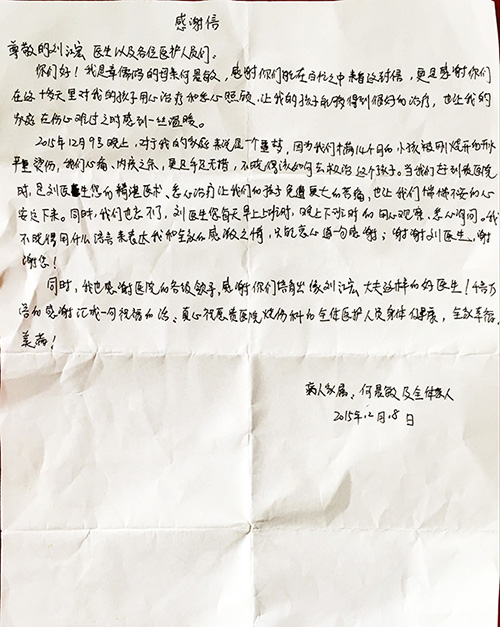 感谢信
尊敬的刘江宏医生以及各位医护人员们。
你们好！我是辜伽的母亲何昱敏，感谢你们能在百忙之中来看这封信，更是感谢你们
在这十埃天里对我的孩子用心治疗和悉心照顾，让我的孩子能够得到很好的治疗，也让我的
家庭在伤心难过之时感到一丝温暖。
2015年12月9号晚上，对于我的家庭来说是一个噩梦，因为我们十个月的小孩被刚烧开的开水
严重烫伤，我们心痛、内疚之余，更是手足无措，不晓得该如何去救治这个孩子。当我们赶到贵医院
时，是刘医生您的精湛医术、悉心治疗让我们的孩子免遭更大的苦痛，也让我们惴惴不安的心
安定下来。同时，我们也忘不了，刘医生您每天早上上班时、晚上下班时的用心观察、悉心询问。我
不晓得用什么语言来表达我和全家的感激之情，只能衷心道一句感谢；谢谢刘医生，谢
谢您！
同时，我也感谢医院的各级领导，感谢你们培育出像刘江宏大夫这样的好医生！千言万
语的感谢汇成一句祝福的话、真心祝愿贵医院烧伤科的全体医护人员身体健康，全家幸福
美满！
病人家属：何昱敏及全体家人
2015年12月18日